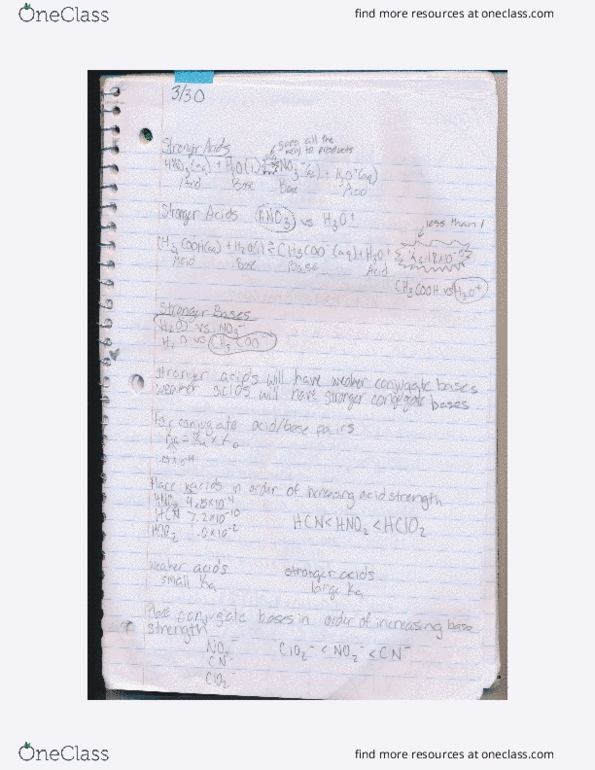 OneClass
find more resources at oneclass.com
3/30
Stronger Acids
goes all the
way to products
HNO3(aq) + H2O(l) ⇌ NO3-(aq) + H3O+(aq)
Acid Base Base Acid
Stronger Acids HNO3 vs H3O+
less than 1
CH3COOH(aq) + H2O(l) ⇌ CH3COO-(aq) + H3O+
Acid Base Base Acid
CH3COOH vs H3O+
Stronger Bases
H2O vs NO3-
H2O vs
Stronger acids will have weaker conjugate bases
weaker acids will have stronger conjugate bases
For conjugate acid/base pairs
Place acids in order of increasing acid strength
HNO2 4.5x10-4
HCN 7.2x10-10
HCN<HNO2<HClO2
weaker acids
small Ka
stronger acids
large Ka
Place conjugate bases in order of increasing base
strength
NO2-
CN-
ClO2
ClO2- < NO2- < CN-
OneClass
find more resources at oneclass.com